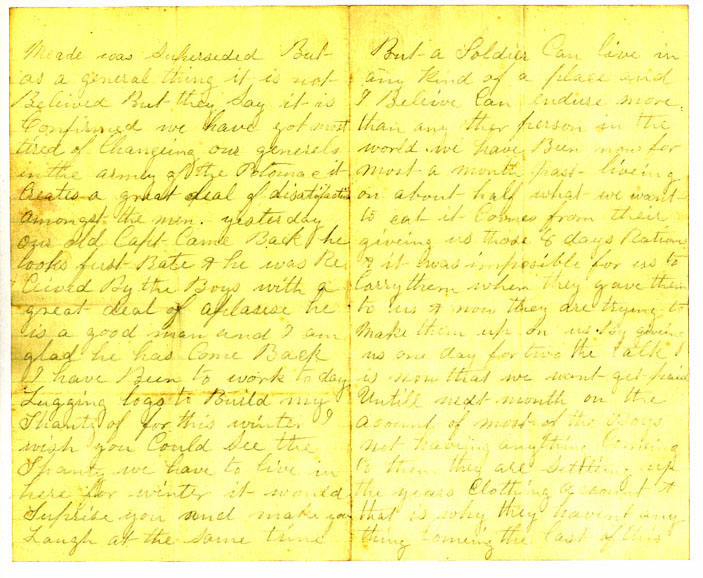 Meade was Superseded But
as a general thing it is not
Beleived But they Say it is
Confirmed we have got most
tired of Changeing our generels
in the army of the Potomac it
Creates a great deal of disatisfaction
amongst the men. yesterday
our old Capt Came Back & he
looks first Rate & he was Re
ceived By the Boys with a
great deal of aplause he
is a good man and I am
glad he has Come Back
I have Been to work to day
Lugging logs to Build my
Shanty of for this winter I
wish you Could See the
Shanty we have to live in
here for winter it would
Suprise you and make you
Laugh at the Same time
But a Soldier Can live in
any Kind of a place and
I Beleive Can endure more
than any other person in the
world we have Been now for
most a month past liveing
on about half what we want
to eat it Comes from their
giveing us those 8 days Rations
& it was imposible for us to
Carry them when they gave them
to us & now they are trying to
Make them up on us By giveing
us one day for two the talk
is now that we wont get paid
Untill next month on the
acount of most of the Boys
not having anything Comeing
to them they are Settling up
the years Clothing acount &
that is why they havent any
thing Comeing the last of this